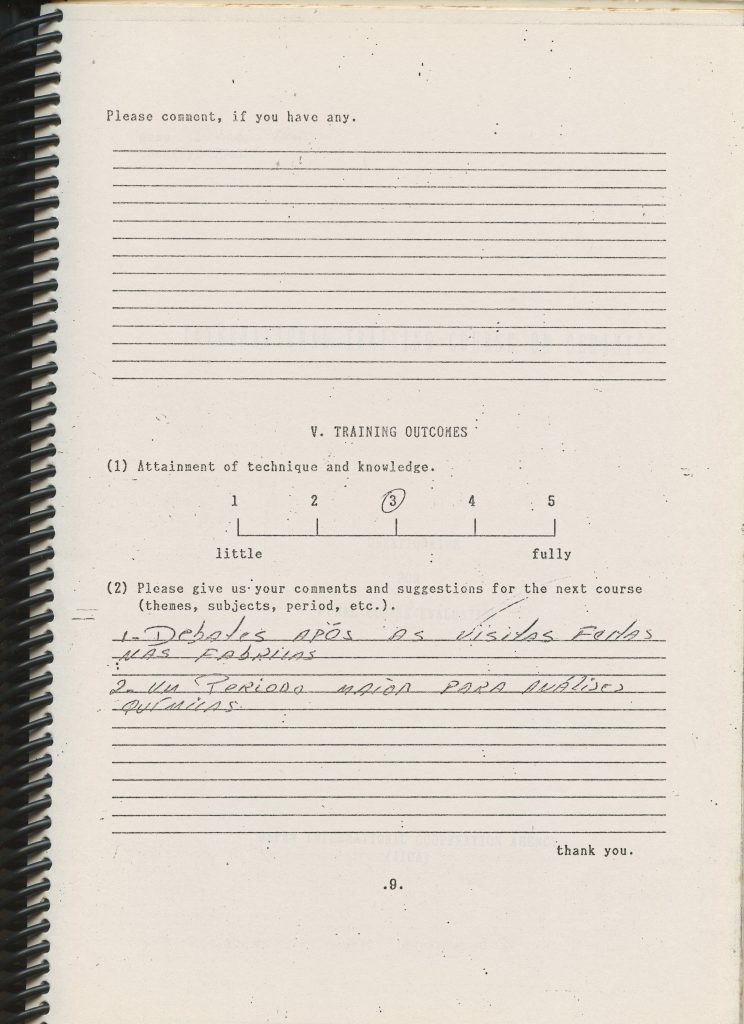 Please comment, if you have any.
V. TRAINING OUTCOMES
(1) Attainment of technique and knowledge.
1 2 3 4 5
little fully
(2) Please give us your comments and suggestions for the next course
(themes, subjects, period, etc.).
1- Debates APÓS AS visitas FEITAS
NAS FABRICAS
2- UM Periodo MAIOR PARA ANÁLISES
QUÍMICAS.
thank you.
.9.